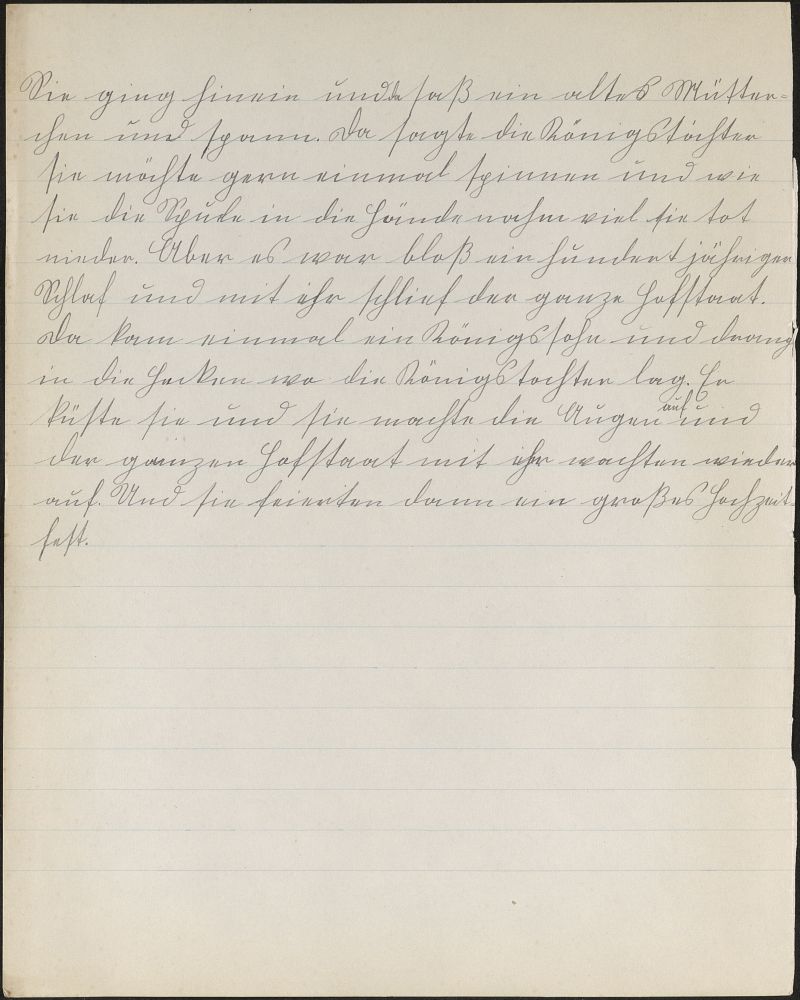 Sie ging hinein und da saß ein altes Mütter-
chen und spann. Da sagte die Königstochter
sie möchte gern einmal spinnen und wie
sie die Spule in die Hände nahm viel sie tot
nieder. Aber es war bloß ein hundert jähriger
Schlaf und mit ihr schlief der ganze Hofstaat.
Da kam einmal ein Königssohn und drang
in die Hecken wo die Königstochter lag. Er
küßte sie und sie machte die Augen auf und
der ganzen Hofstaat mit ihr wachten wieder
auf. Und sie feierten dann ein großes Hochzeit-
fest.